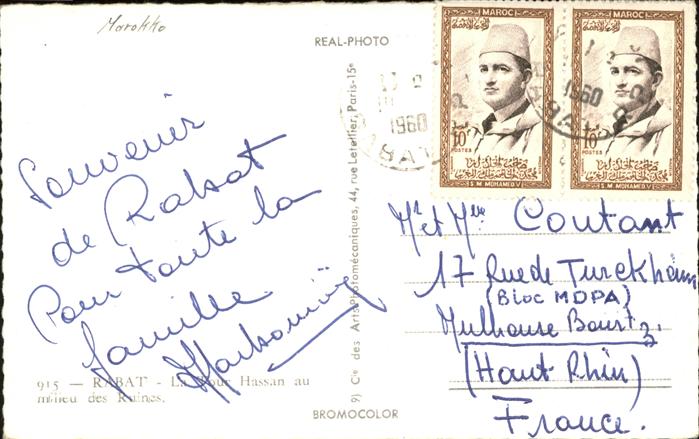 Marokko
REAL-PHOTO
Souvenir
de Rabat
Pour toute la
famille
915 — RABAT - La Tour Hassan au
milieu des Ruines.
BROMOCOLOR
Cie des Arts Photomécaniques, 44, rue Letellier, Paris-15e
MAROC
10
POSTES
S. M. MOHAMED V
MAROC
10
POSTES
S. M. MOHAMED V
1960
RABAT
1960
RABAT
Mr et Mme Coutant
17 Rue de Turckheim
(Bloc MDPA)
Mulhouse
(Haut Rhin)
France.